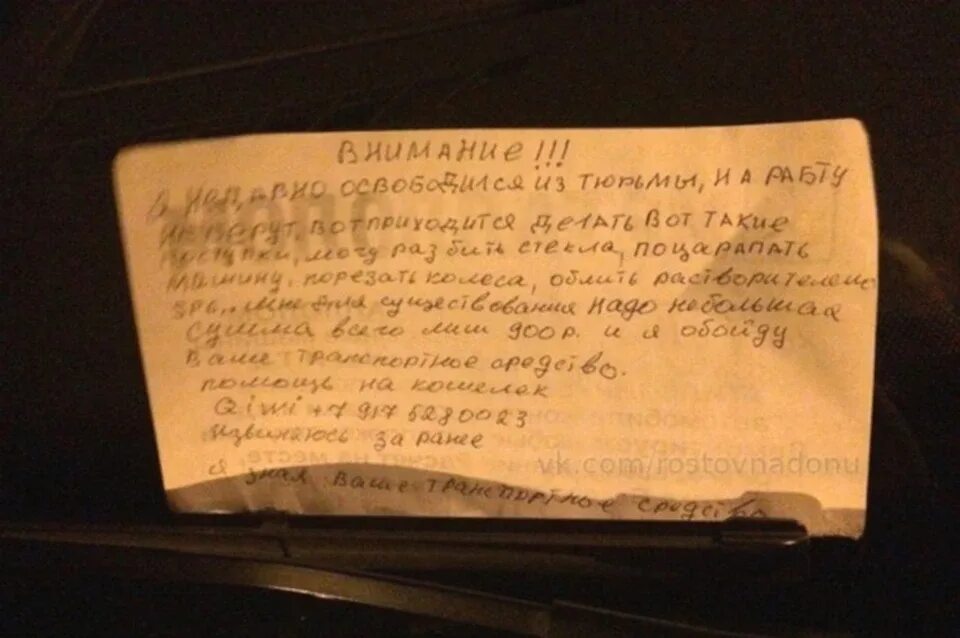 ВНИМАНИЕ!!!
Я недавно освободился из тюрьмы, на рабту
не берут, вот приходится делать вот такие
поступки, могу разбить стекла, поцарапать
машину, порезать колеса, облить растворителем
зрь,. мне для существования надо небольшая
сумма всего лиш 900 р. и я обойду
Ваше транспортное средство.
помощь на кошелек
Qiwi +7 917 5280023
извиняюсь за ранее
vk.com/rostovnadonu
я знаю Ваше транспортное средство